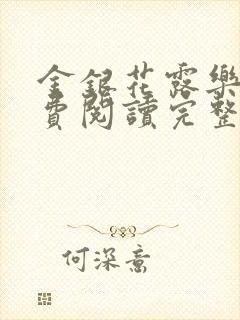 金銀花露樂
費閱讀完整
何深意